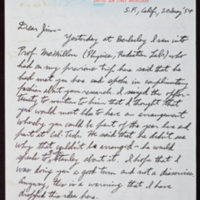 S.F., Calif., 20 Aug '54
Dear Jim—
Yesterday at Berkeley I ran into
Prof. McMillan (Physics, Radiation Lab) who
had on my previous trip has said that he
had met you and spoke in complimentary
fashion about your research. I seized the oppor-
tunity to mention to him that I thought that
you would most like to have an arrangement
whereby you could be part of the year here and
part at Cal Tech. He said that he didn't see
why that couldn't be arranged—he would
speak to Stanley about it. I hope that I
was doing you a good turn and not a disservice.
Anyway, this is a warning that I have
dropped the idea here.